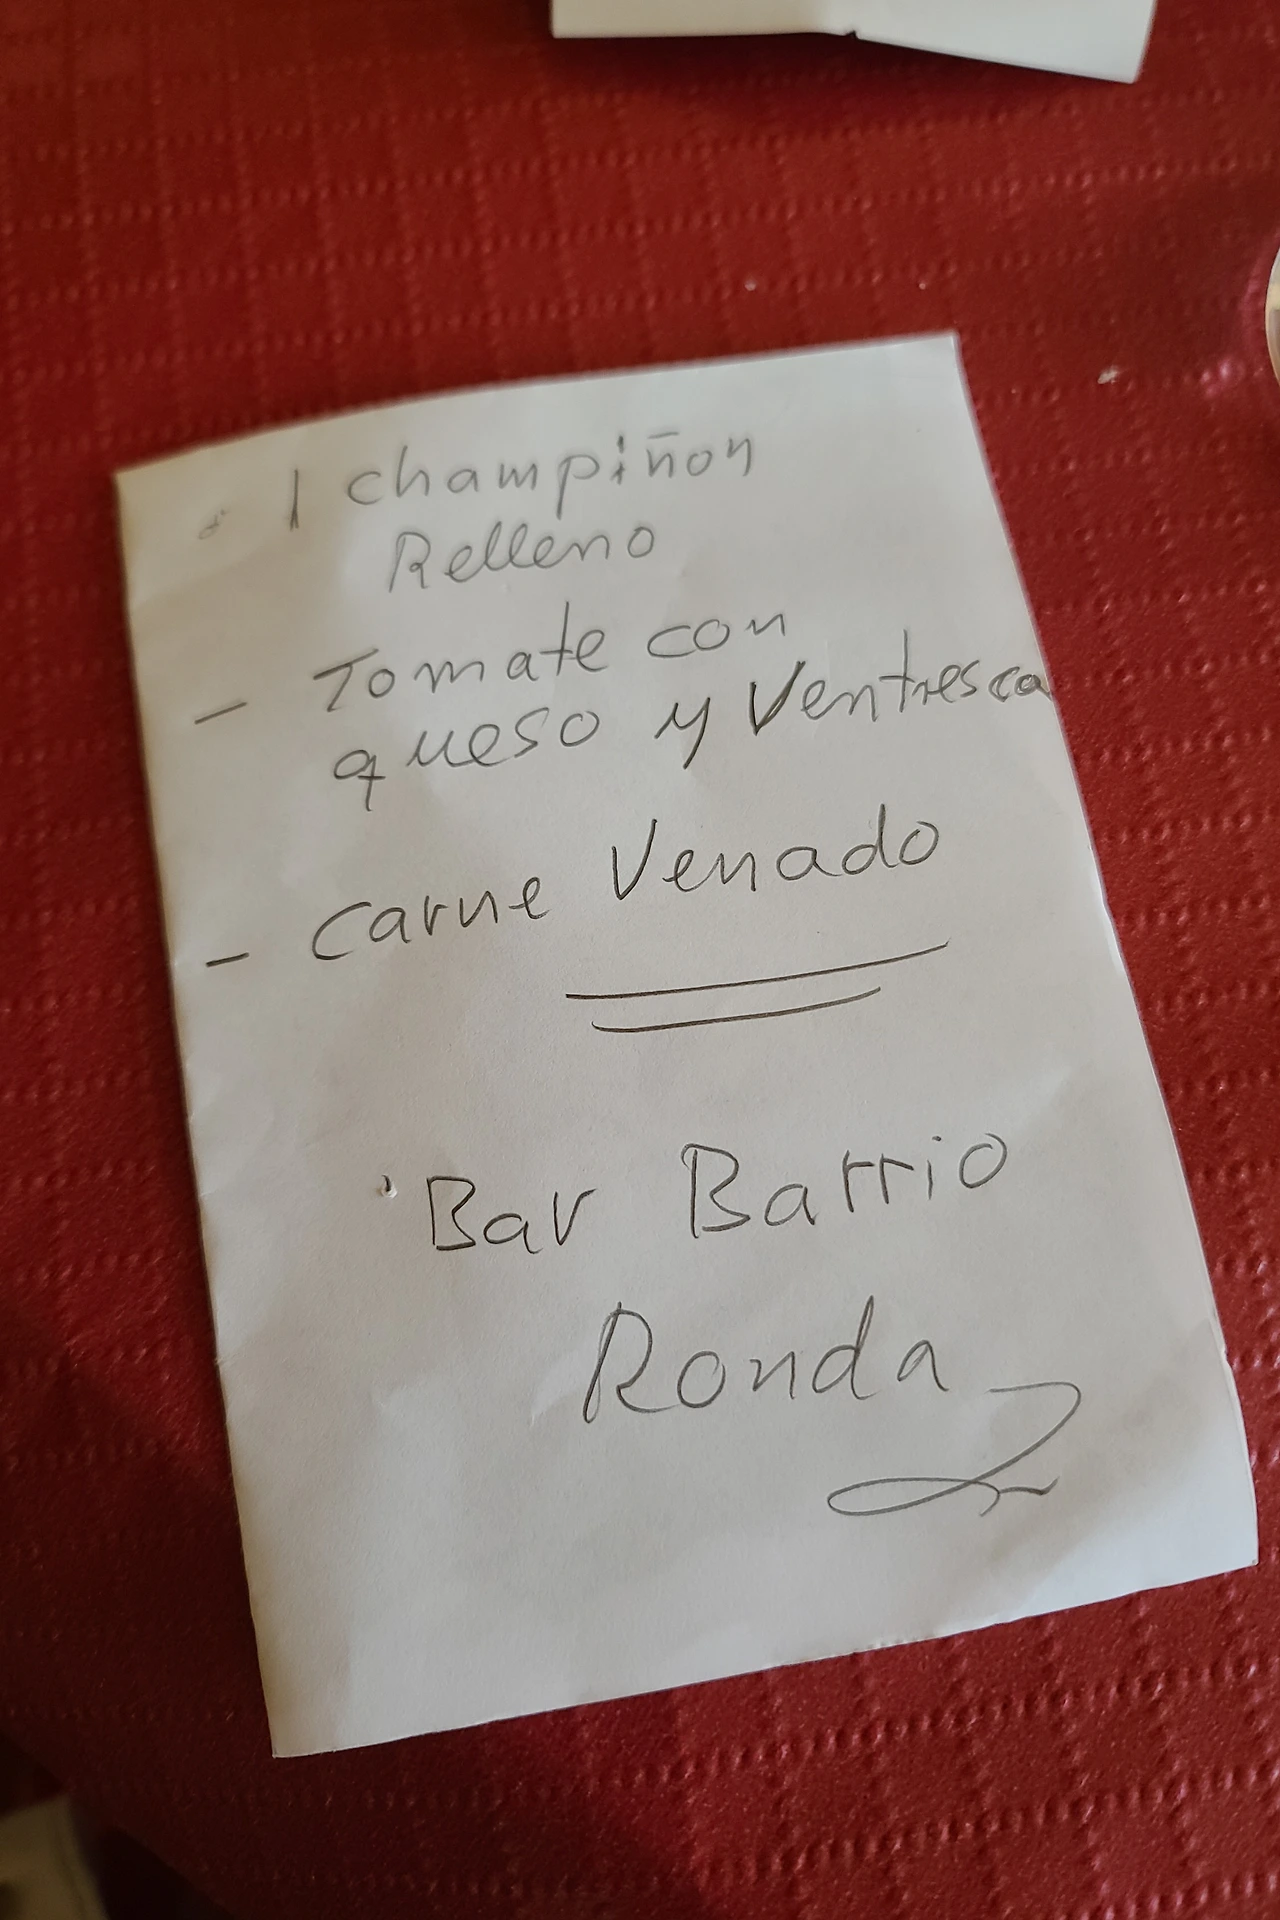 1 champiñon
Relleno
- Tomate con
queso y Ventresca
- Carne Venado
Bar Barrio
Ronda